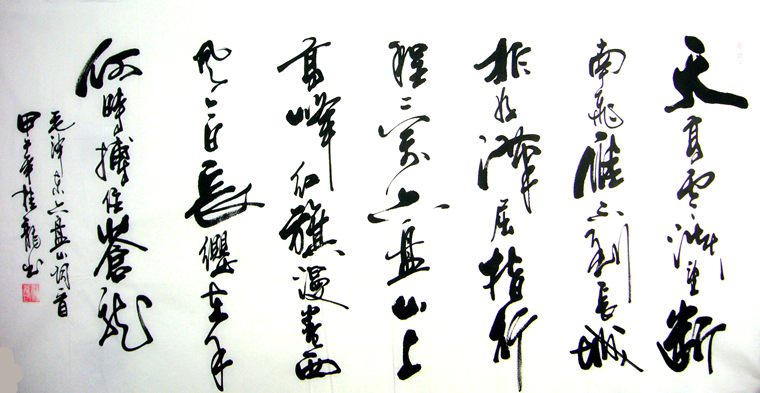 天高雲淡望斷
南飛雁不到長城
非好漢屈指行
程二萬六盤山上
高峰紅旗漫卷西
風今日長纓在手
何時縛住蒼龍
毛澤東六盤山詞一首
甲午年桂龍書